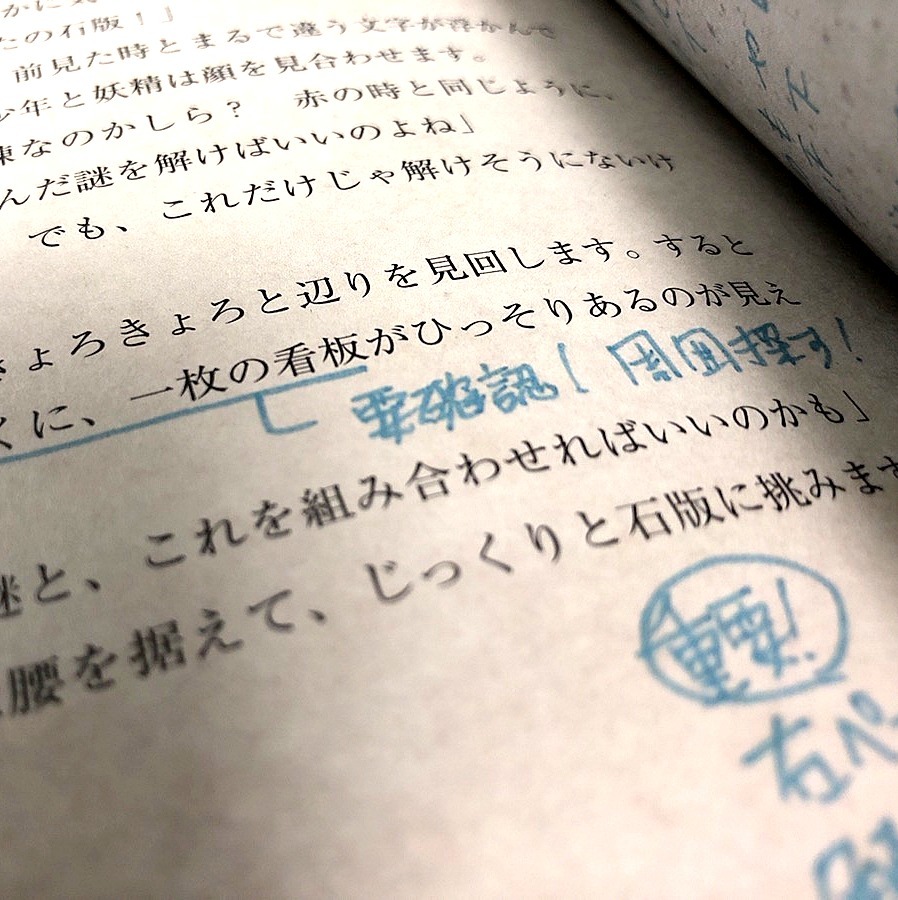 かに
たの石版！」
前見た時とまるで違う文字が浮かんで
少年と妖精は顔を見合わせます。
なのかしら？　赤の時と同じように、
んだ謎を解けばいいのよね」
でも、これだけじゃ解けそうにないけ
きょろきょろと辺りを見回します。すると
くに、一枚の看板がひっそりあるのが見え
要確認！周囲探す！
謎と、これを組み合わせればいいのかも」
腰を据えて、じっくりと石版に挑みます
重要！
右ペー